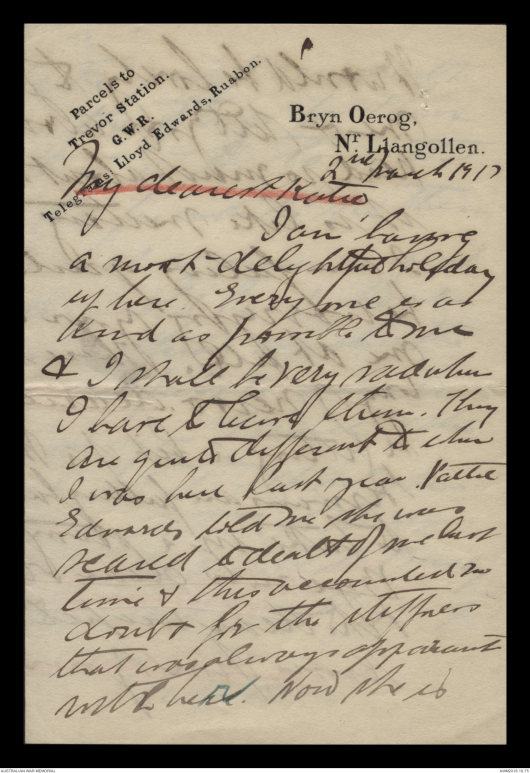 Parcels to
Trevor Station.
G.W.R.
Telegrams: Lloyd Edwards, Ruabon.
Bryn Oerog,
Nr. Llangollen.
2nd March 1917
My dearest Katie
I am having
a most delightful holiday
up here. Every one is as
kind as possible to me
& I shall be very sad when
I have to leave them. They
are quite different to when
I was here last year. Kattie
Edwards told me she was
scared to death of me last
time & this accounted no
doubt for the stiffness
that was always apparent
with her. Now she is
AUSTRALIAN WAR MEMORIAL